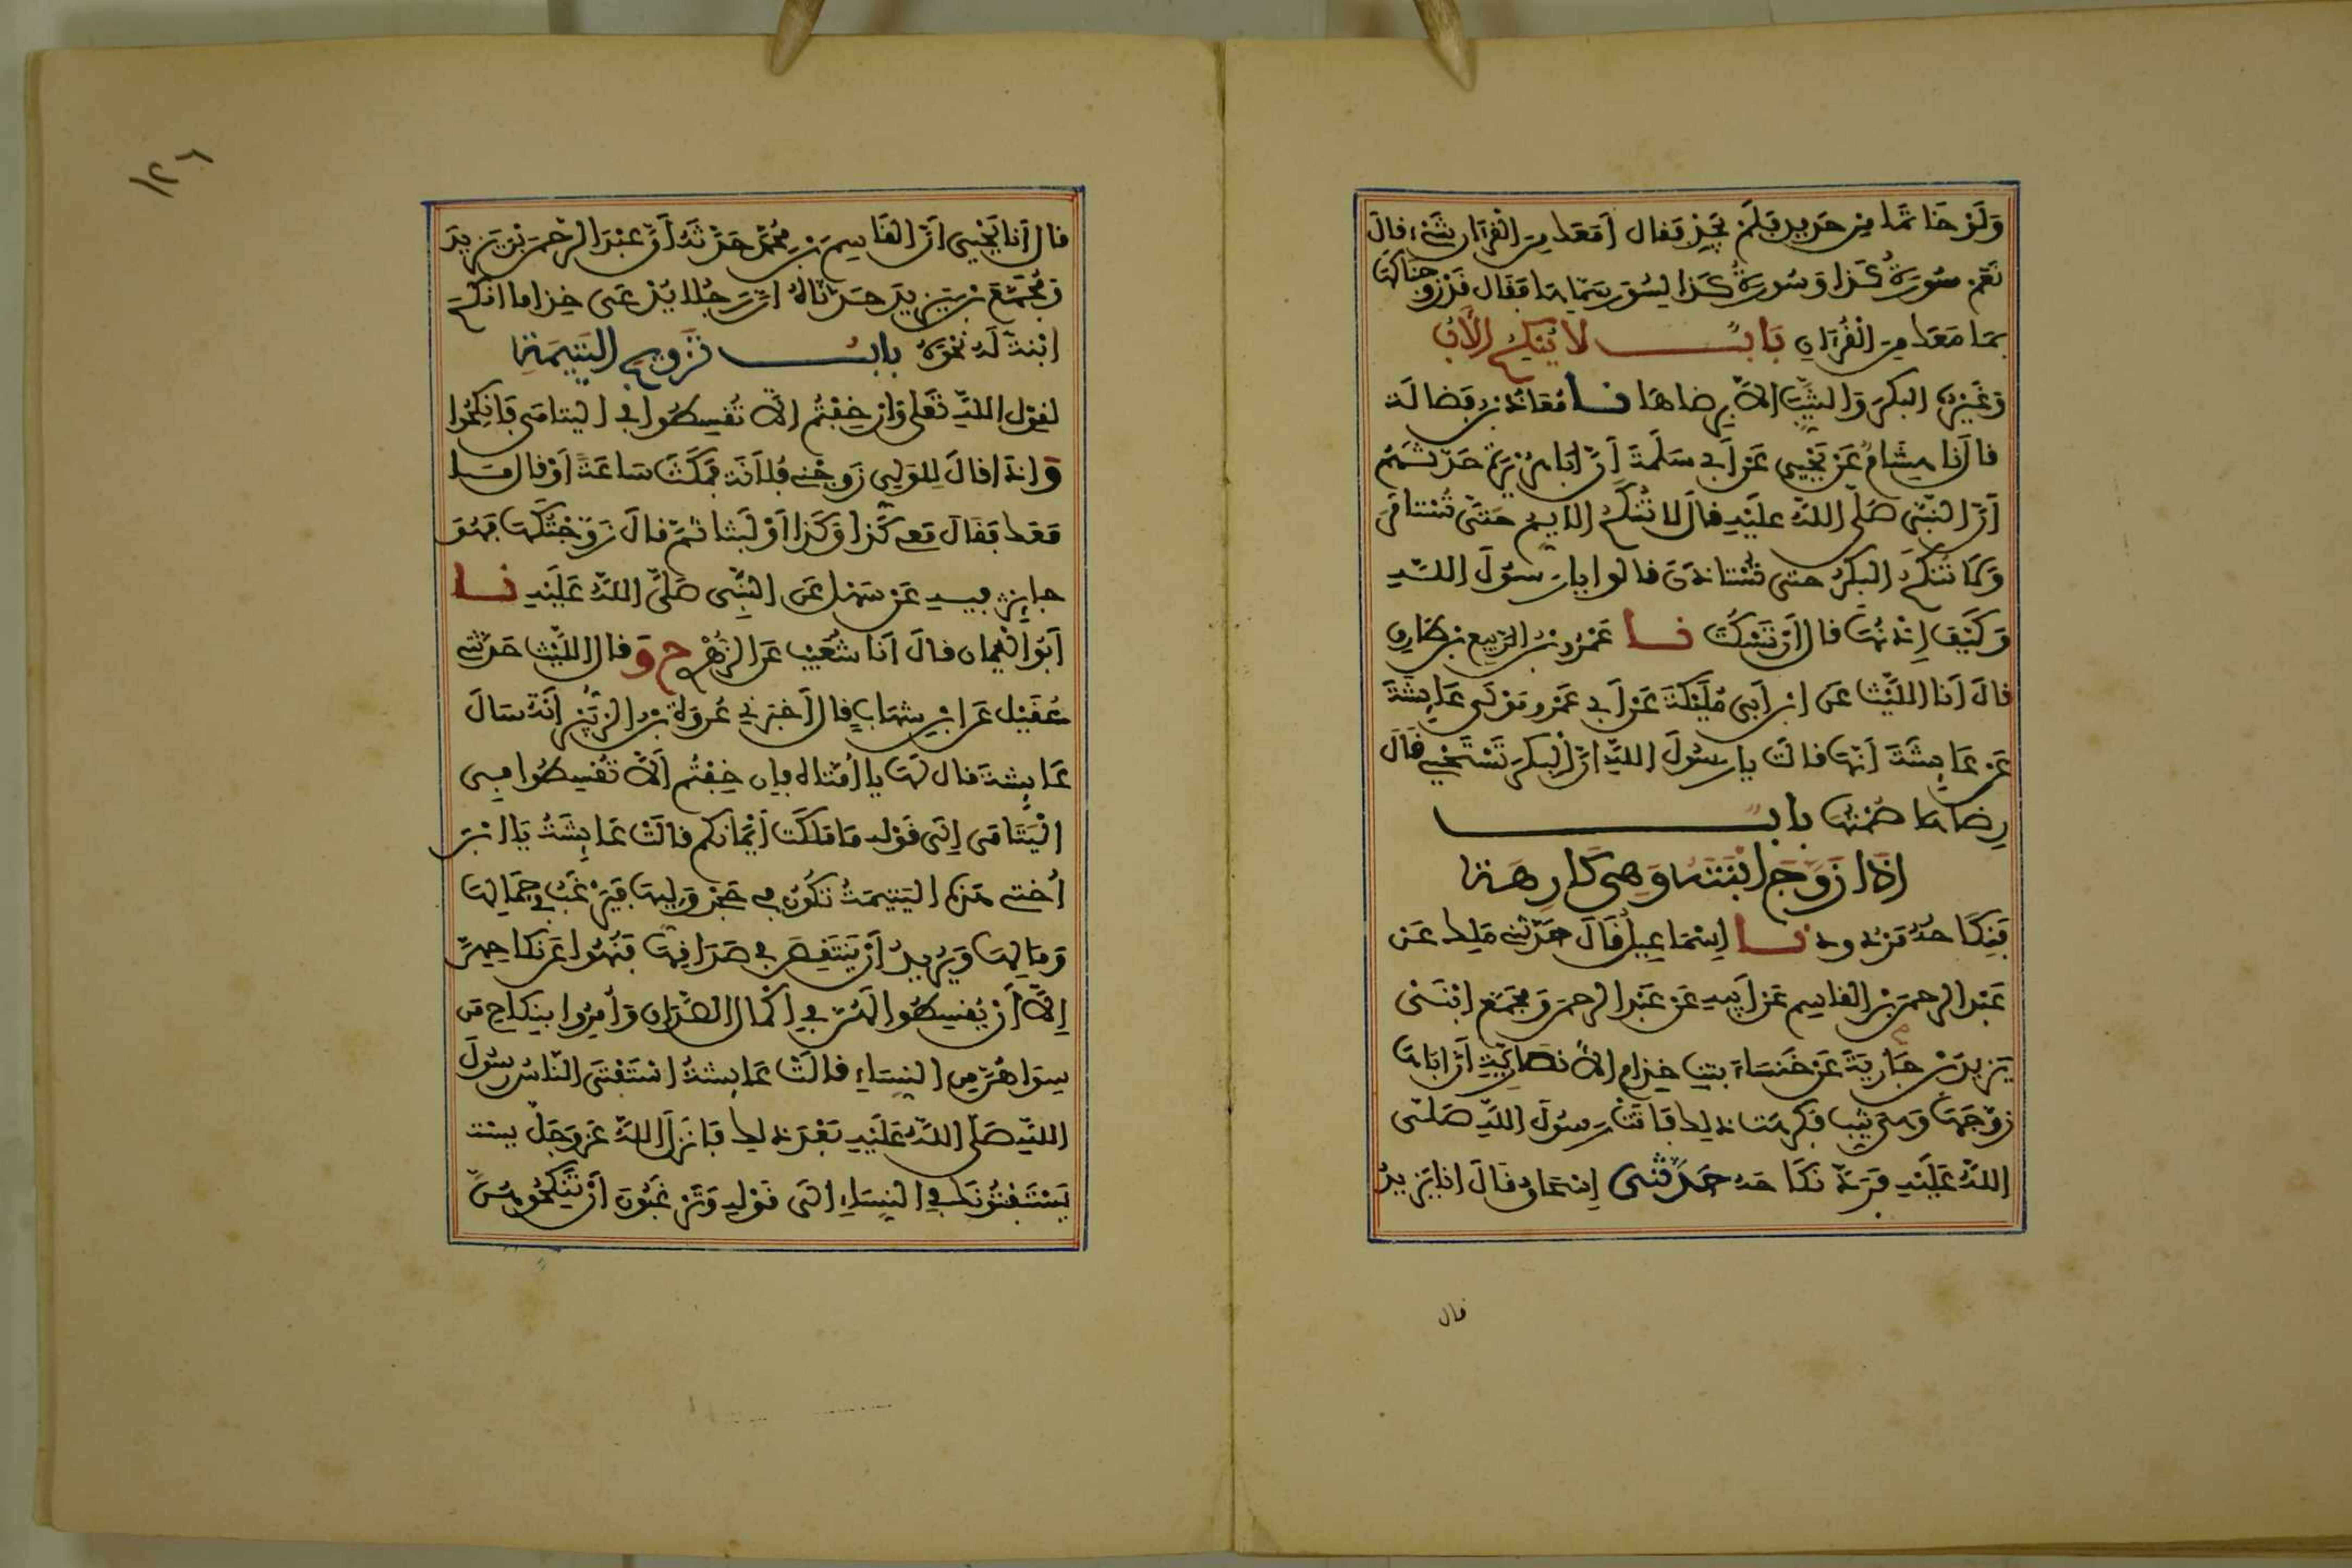 وَلَوْ خَاتَمًا مِنْ حَدِيدٍ فَلَمْ يَجِدْ فَقال أمَعَكَ مِنَ الْقُرْآنِ شَيْءٌ قالَ
نَعَمْ سُورَةُ كَذا وَسُورَةُ كَذا لِسُوَرٍ سَمَّاهَا فَقَال قَدْ زوجناكها
بمَا مَعَكَ مِنَ الْقُرْآنِ بَابٌ لا يُنْكِحُ الأَبُ
وَغَيْرُهُ البكرَ وَالثَّيِّبَ إلاَّ بِرِضاهَا نا مُعَاذُ بْنُ فَضَالَة
قالَ نا هِشَامٌ عَنْ يَحْيى عَنْ أَبِي سَلَمَةَ أنَّ أبَا هُرَيْرَةَ حَدَّثَهُمْ
أنَّ النَّبيَّ صَلَّى اللَّهُ علَيْهِ قالَ لا تُنْكَحُ الأيِّم حَتَّى تُسْتَامَرَ
وَلَا تُنْكَحُ البكرُ حتى تُسْتاذَنَ قالوا يا رَسُولَ اللَّهِ
وَكَيْفَ إِذْنُهَا قالَ أَنْ تَسْكُتَ نا عَمْرُو بْنُ الرَّبِيعِ بْنِ طَارِقٍ
قالَ أنَا اللَّيْثُ عَنِ ابْنِ أبِي مُلَيْكَةَ عَنْ أَبِي عَمْرٍو مَوْلَى عَايِشَةَ
عَنْ عَايِشَةَ أنَّهَا قالَتْ يا رسُولَ اللَّهِ إنَّ الْبِكرَ تَسْتَحْيِي قَالَ
رِضَاهَا صَمْتُهَا بابٌ
إذَا زَوَّجَ ابْنَتَهُ وَهِيَ كَارِهَة
فَنِكَاحُهُ مَرْدُود نا إسْمَاعِيلُ قَالَ حَدَّثَنِي مَلِك عَنْ
عَبْدِ الرحمَنِ بْنِ القاسِمِ عَنْ أَبِيهِ عَنْ عَبْدِ الرحمَنِ وَمُجَمِّعٍ ابْنَيْ
يَزِيدَ بْنِ جَارِيَةَ عَنْ خَنْسَاءَ بِنْتِ خِذَامٍ الأنْصَارِيَّةِ أَنَّ أبَاهَا
زَوَّجَهَا وَهِيَ ثيِّب فَكَرِهَتْ ذلِكَ فَأتَتْ رَسُولَ اللَّهِ صَلَّى
اللَّهُ عَلَيْهِ فَرَدَّ نكَاحَهُ حَدَّثَنِي إسْحَاقُ قالَ انا يَزِيدُ
قال
١٢٦
قال أنَا يَحْيى أنَّ القَاسِمَ بْنَ مُحَمَّدٍ حَدَّثَهُ أَنَّ عَبْدَ الرحْمَنِ بْنَ يَزِيدَ
وَمُجَمِّعَ بْنَ يَزِيدَ حَدَّثاهُ أنَّ رَجُلا يُدْعَى خِذاما أنكَحَ
ابْنة لَهُ نَحْوَهُ بابُ تَزْوِيجِ اليَتِيمَةِ
لقوْلِ اللَّهِ تَعَلى وَإنْ خِفْتُمْ ألاَّ تُقْسِطُوا في اليتامَى فَانْكِحُوا
وَإذا قالَ لِلوَلِيِّ زَوِّجْنِي فُلاَنَةَ فَمَكَثَ سَاعَةً أوْ قالَ مَا
مَعَكَ فَقَالَ مَعِي كَذا وَكَذا أوْ لَبِثا ثُمَّ قالَ زَوَّجْتُكَهَا فَهُوَ
جايِزٌ فِيهِ عَنْ سَهْلٍ عَنِ النَّبِيِّ صَلَّى اللَّهُ عَلَيْهِ نا
أبُو الْيَمانِ قالَ أنَا شُعَيْبٌ عَنِ الزُّهْرِيِّ ح وَقالَ اللَّيْث حَدَّثَنِي
عُقَيْل عَنِ ابْنِ شِهَابٍ قالَ أخبَرَنِي عُرْوَةُ بْنُ الزُّبَيْرِ أنَّهُ سَألَ
عَايِشَةَ قال لَهَا يا أمَّتاه فإن خِفْتُمْ ألاَّ تُقْسِطُوا فِي
الْيَتَامَى إلَى قَوْلِهِ مَا مَلَكَتْ أيْمَانُكم قالَتْ عَايِشَةُ يَا ابْنَ
أخْتِي هَذِهِ اليَتِيمَةُ تَكُونُ في حَجْرِ وَلِيِّهَا فَيَرْغَبُ فِي جَمَالِهَا
وَمَالِهَا وَيُرِيدُ أنْ يَنْتَقِصَ فِي صَدَاقِهَا فَنُهُوا عَنْ نِكاحِهِنَّ
إلاَّ أَنْ يُقْسِطُوا لَهُنَّ فِي إكْمَالِ الصَّدَاقِ وَأُمِرُوا بِنِكَاحِ مَن
سِوَاهُنَّ مِنَ النِّسَاءِ قالَتْ عَايِشَةُ اسْتَفْتَى النَّاسُ رسُولَ
اللَّهِ صَلَّى اللَّهُ عَلَيْهِ بَعْدَ ذلِك فَأنزَلَ اللَّهُ عَزَّ وَجَلَّ يست
يَسْتَفْتُونَكَ فِي النِّسَاءِ إلَى قَوْلِهِ وَتَرْغَبُونَ أنْ تَنْكِحُوهُنَّ